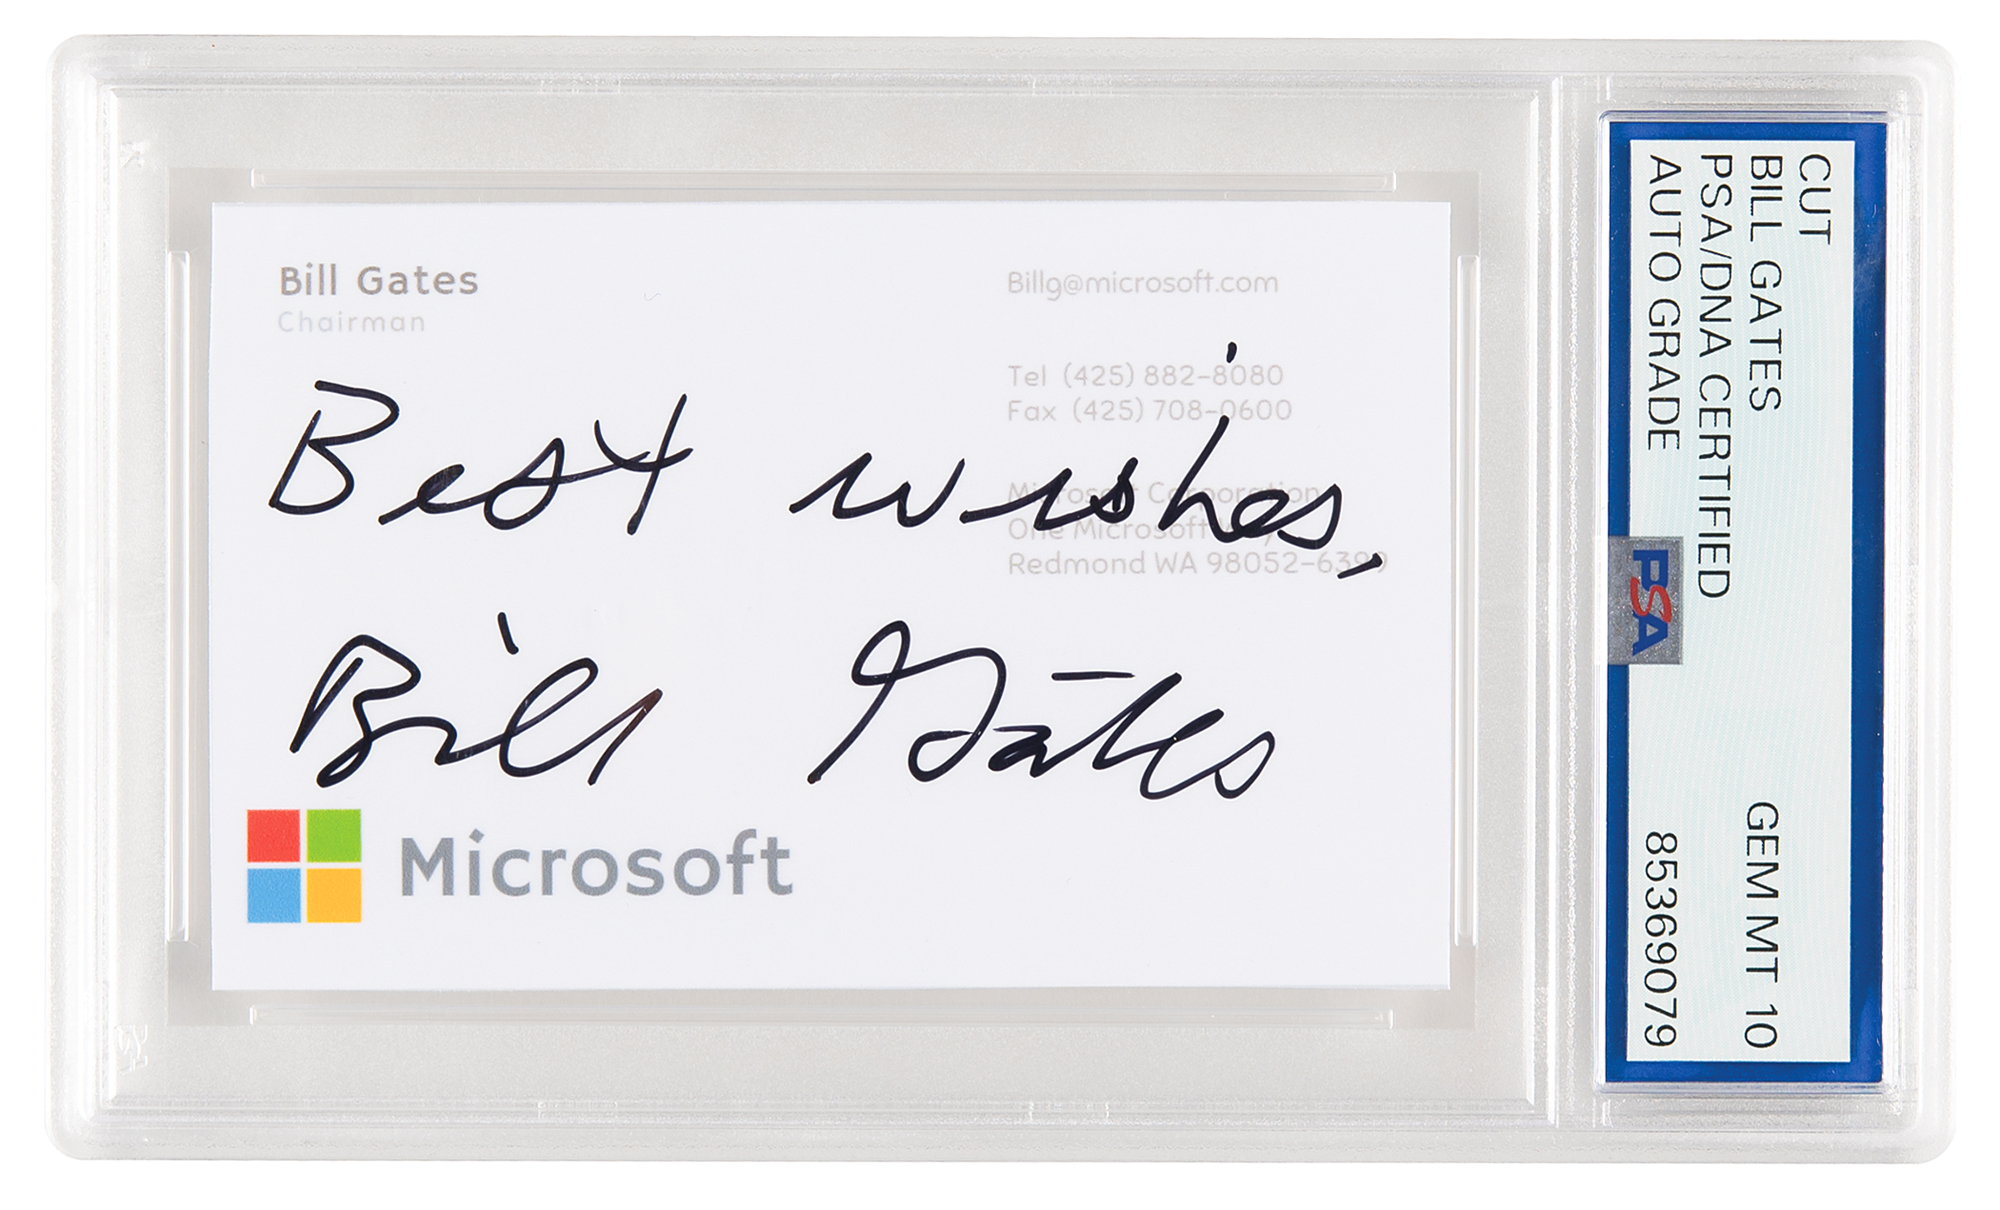 Bill Gates
Chairman
Billg@microsoft.com
Tel (425) 882-8080
Fax (425) 708-0600
Microsoft Corporation
One Microsoft Way
Redmond WA 98052-6399
Best wishes,
Bill Gates
Microsoft
CUT
BILL GATES GEM MT 10
PSA/DNA CERTIFIED
AUTO GRADE 85369079
PSA